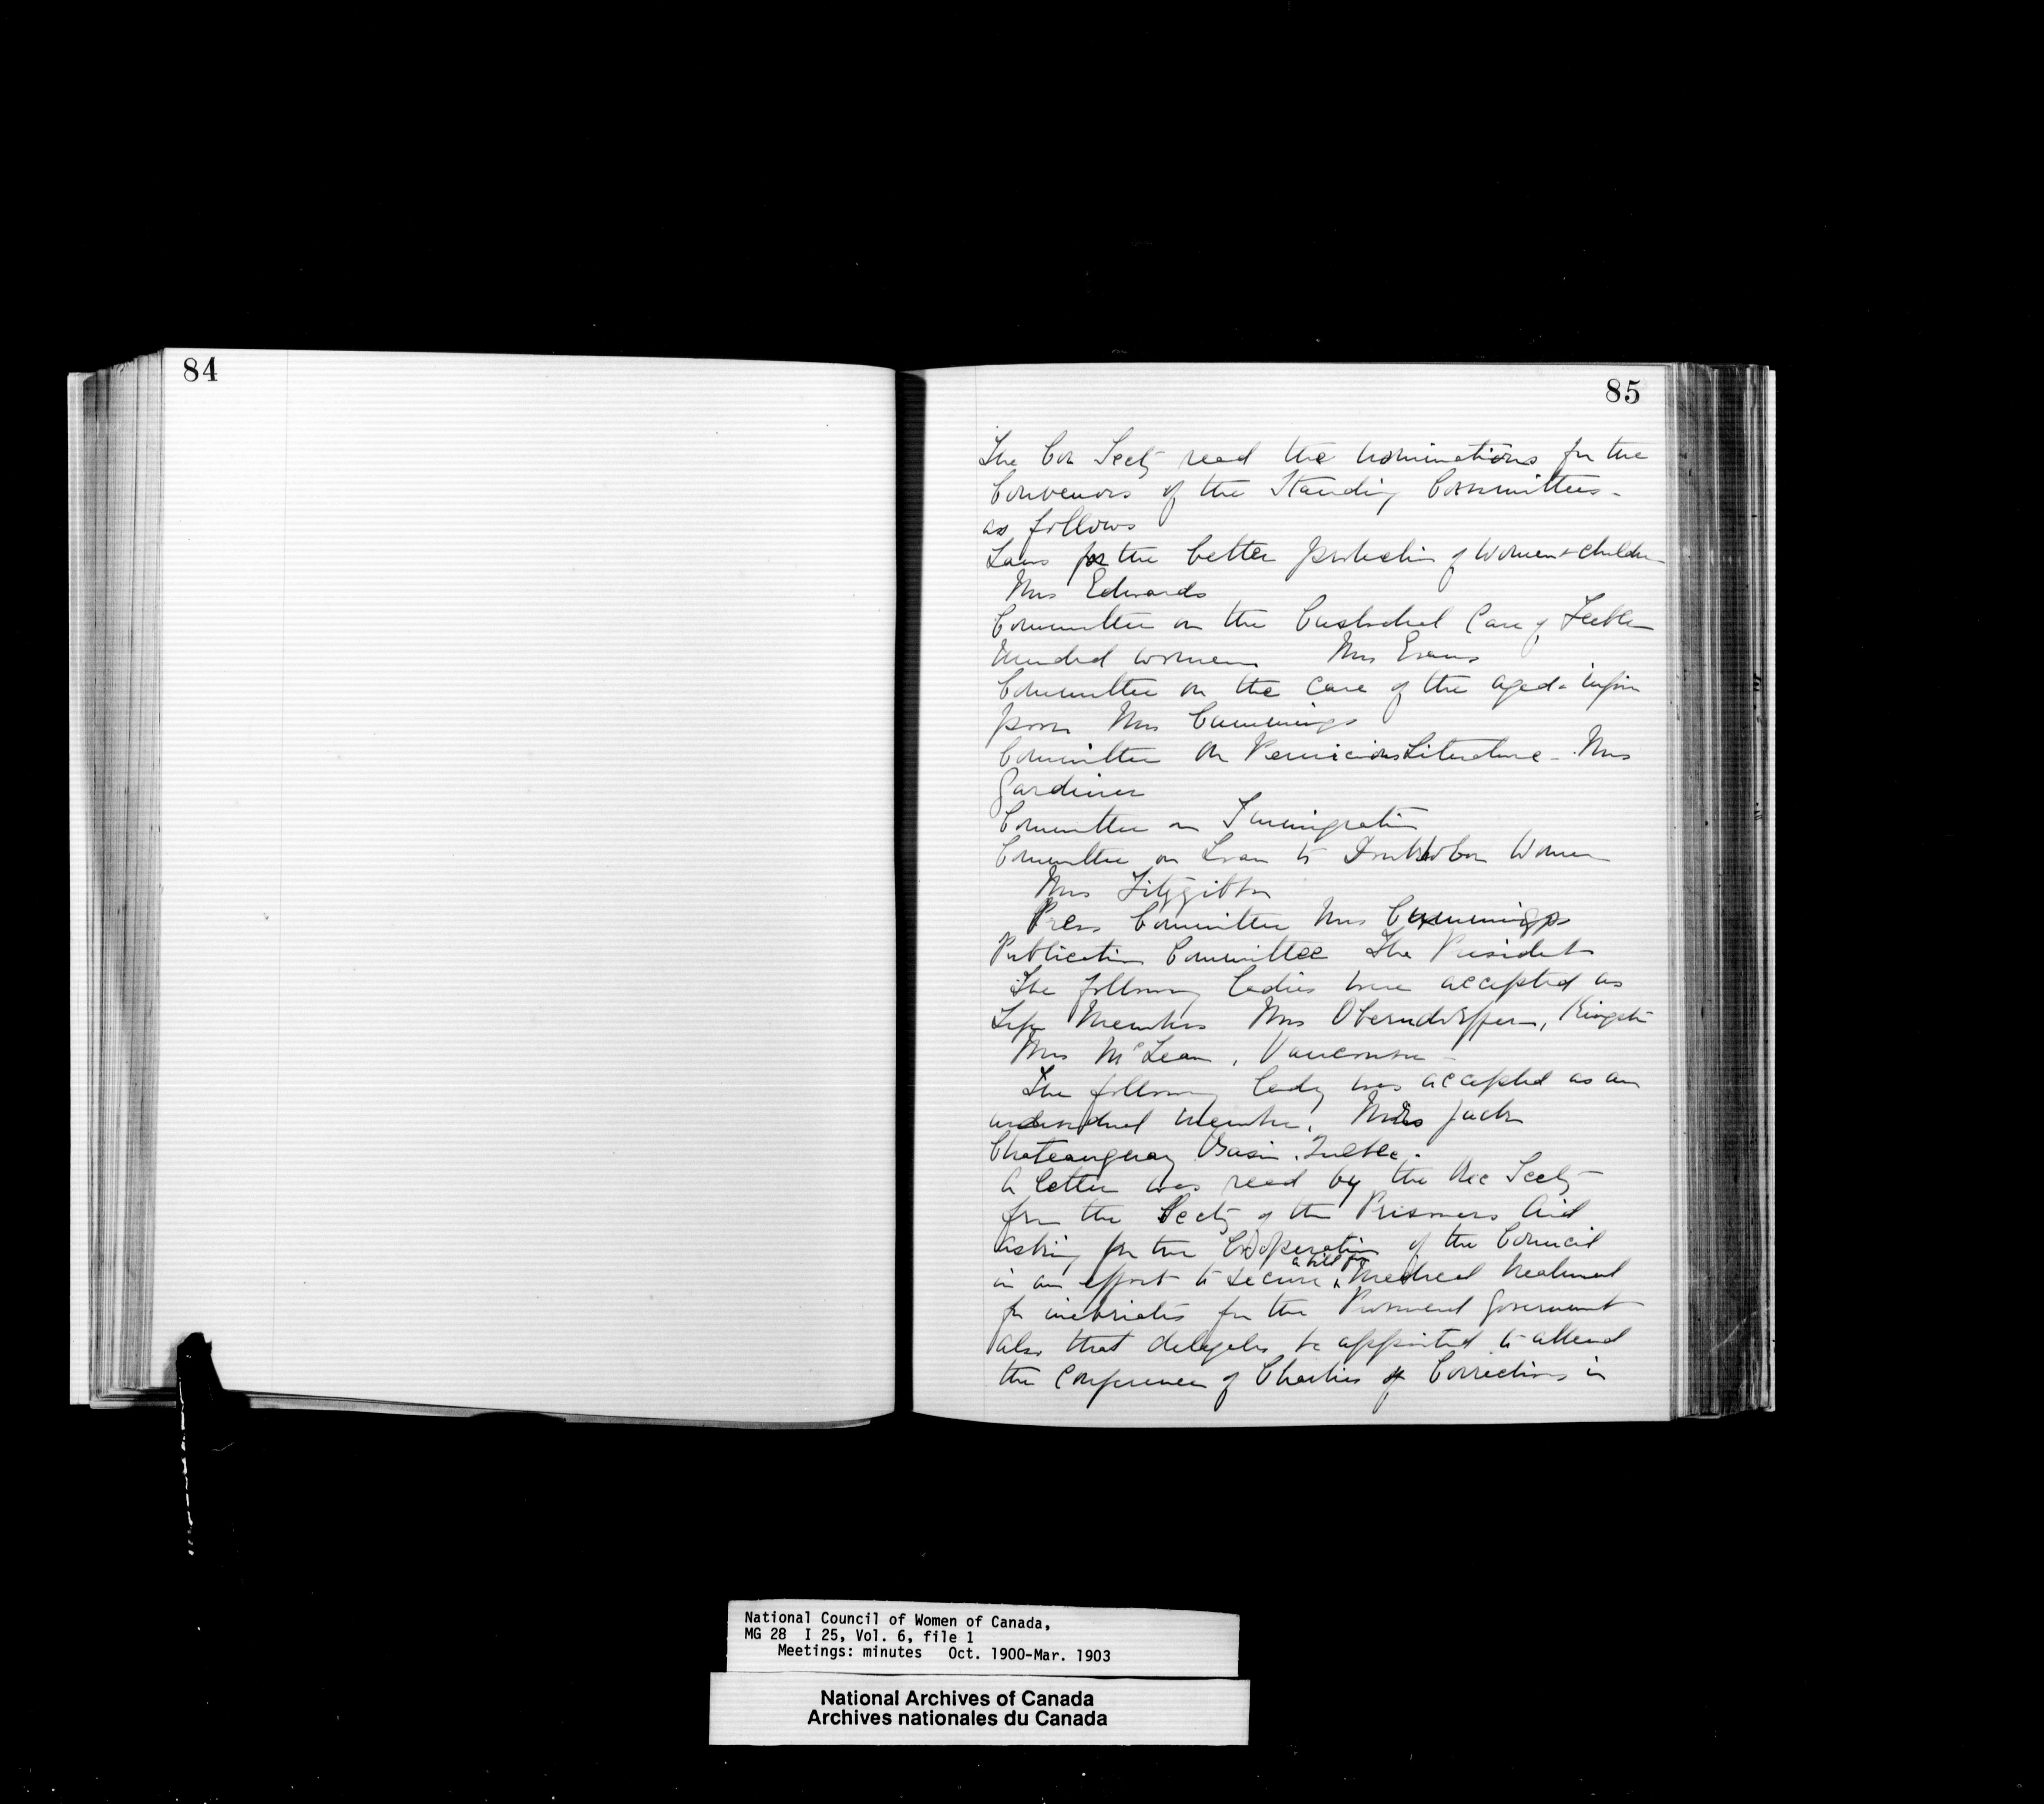 84
85
The Cor Secty read the nominations for the
Convenors of the Standing Committees -
as follows
Laws for the better protection of women & children
Mrs Edwards
Committee on the Custodial Care of Feeble
Minded women Mrs Evans
Committee on the Care of the aged & infirm
poor Mrs Cummings
Committee on Pernicious Literature - Mrs
Gardiner
Committee on Immigration
Committee on Loan to Doukhobor Women
Mrs Fitzgibbon
Press Committee Mrs Cummings
Publication Committee The President
The following ladies were accepted as
Life Members Mrs Oberndorffer, Kingston
Mrs McLean, Vancouver -
The following lady was accepted as an
individual member. Jack
Chateauguay Basin. Quebec.
A letter was read by the Rec Secty
from the Secty of the Prisoners Aid
asking for the Cooperation of the Council
in an effort to secure a bill for medical treatment
for inebriates for the Provincial Government
also that delegates be appointed to attend
the Conference of Charities & Corrections in
National Council of Women of Canada,
MG 28 I 25, Vol. 6, file 1
Meetings: minutes Oct. 1900-Mar. 1903
National Archives of Canada
Archives nationales du Canada